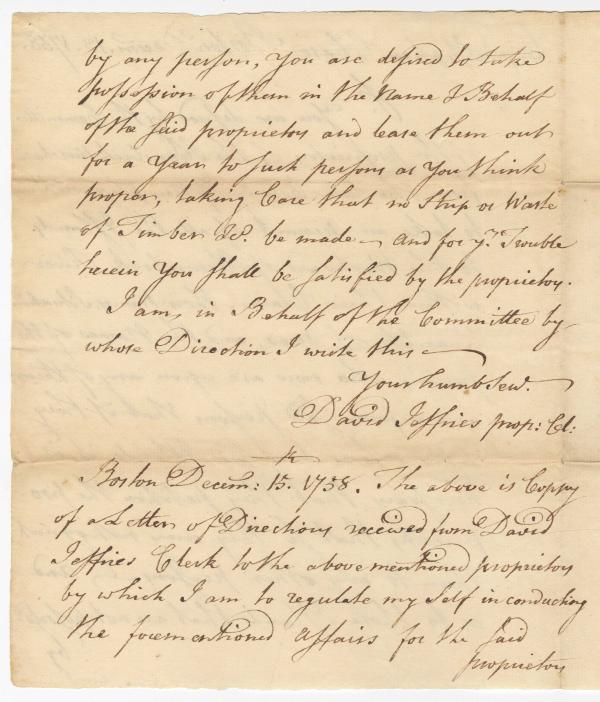 by any person, You are desired to take
possession of them in the Name & Behalf
of the said proprietors and lease them out
for a Year to such persons as You think
proper, taking Care that no Strip or Waste
of Timber &c. be made — and for yr. Trouble
herein You shall be satisfied by the proprietors.
I am, in Behalf of the Committee by
whose Direction I write this —
Your humb Serv. —
David Jeffries prop: Cl:
Boston Decem: 15. 1758. The above is Coppy
of a Letter of Directions received from David
Jeffries Clerk to the abovementioned proprietors
by which I am to regulate my Self in conducting
the forementioned affairs for the said
proprietors